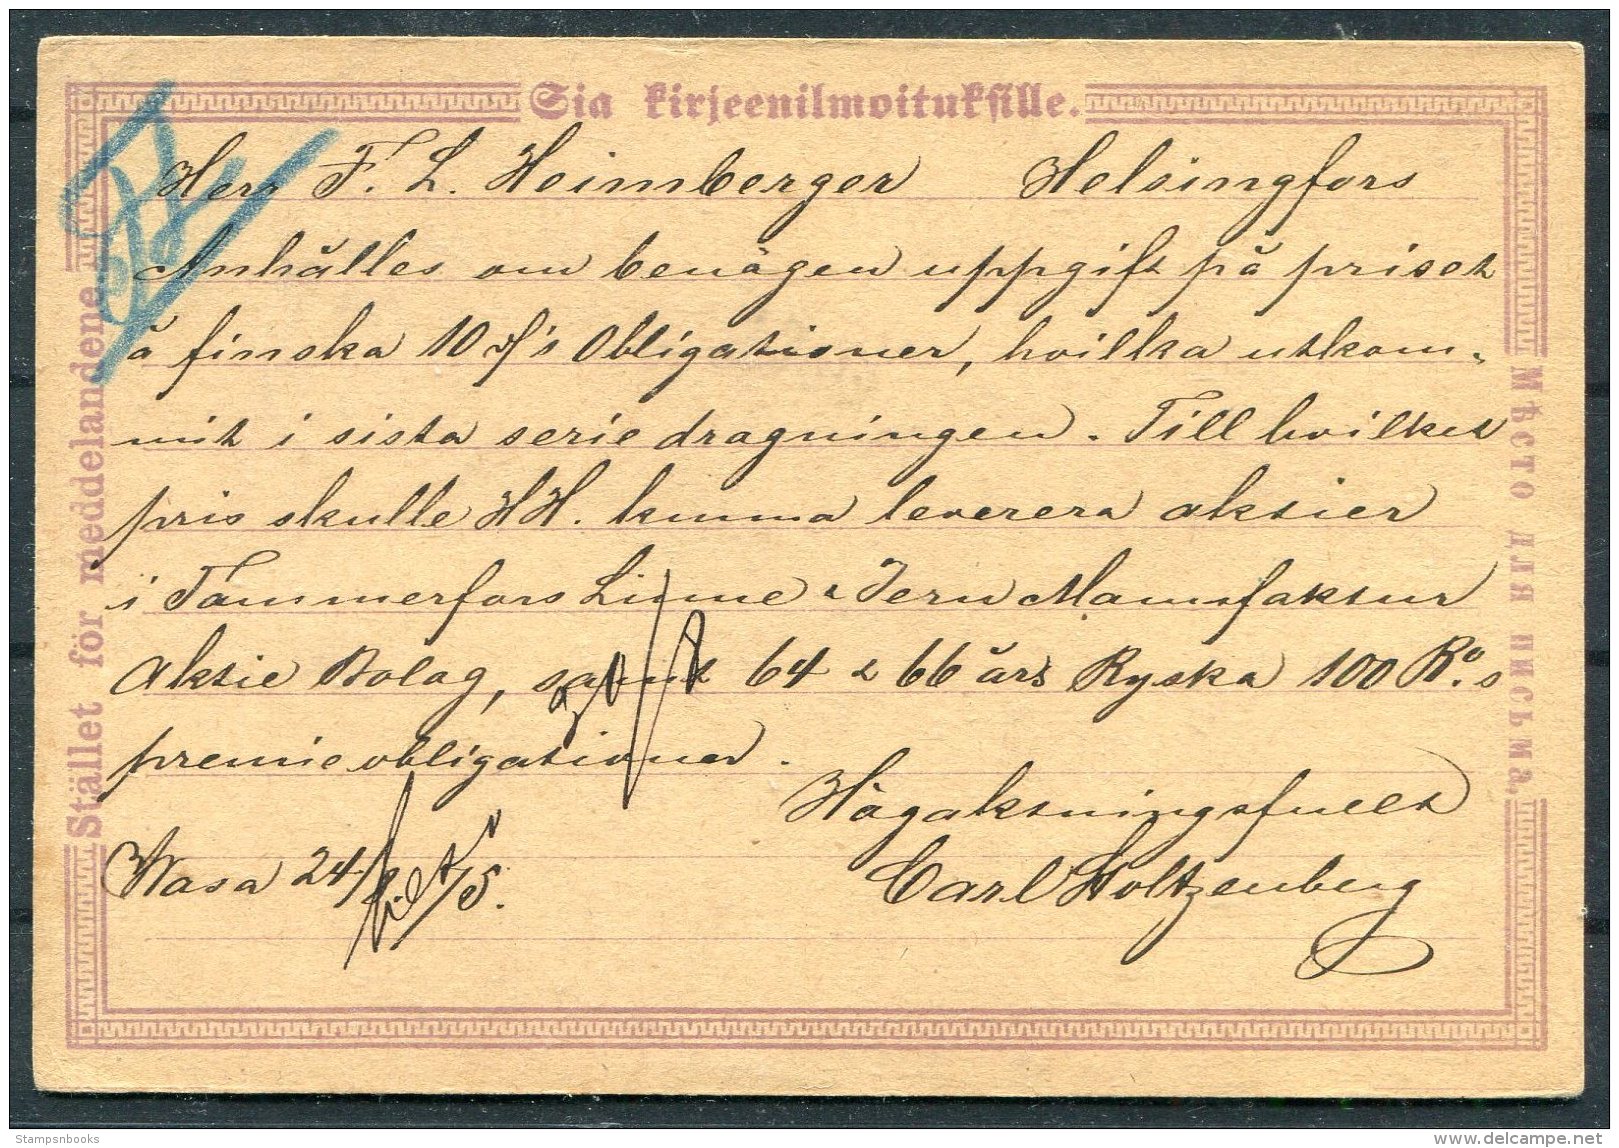 Sia kirjeenilmoituksille.
Stället för meddelandene.
Мѣсто для письма.
Herr F. L. Heimberger Helsingfors
Anhålles om benägen uppgift på priset
å finska 10 Obligationer, hvilka utkom-
mit i sista serie dragningen. Till hvilket
pris skulle HH. kunna leverera aktier
i Tammerfors Linne & Jern Manufaktur
Aktie Bolag, samt 64 & 66 års Ryska 100 Ro.s
premieobligationer.
Högaktningsfullt
Wasa 24/ 75.
Carl Holtzenberg
Stampsnbooks